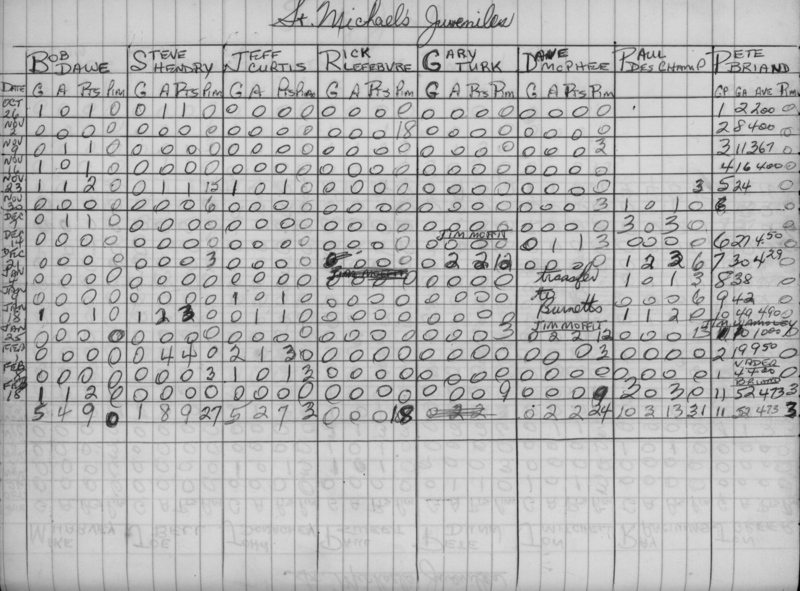 St. Michael's Juveniles
BOB DAWE STEVE HENDRY JEFF CURTIS RICK LEFEBVRE GARY TURK DAVE MCPHEE PAUL DESCHAMP PETE BRIAND
DATE G A Pts Pim G A Pts Pim G A Pts Pim G A Pts Pim G A Pts Pim G A Pts Pim GP GA AVE Pim
OCT 26 1 0 1 0 0 1 1 0 0 0 0 0 0 0 0 0 0 0 0 0 0 0 0 0 1 2 200 0
NOV 2 0 0 0 0 0 0 0 0 0 0 0 0 0 0 0 18 0 0 0 0 0 0 0 0 2 8 400 0
NOV 9 0 1 1 0 0 0 0 0 0 0 0 0 0 0 0 0 0 0 0 0 0 0 0 2 3 11 367 0
NOV 11 1 0 1 0 0 0 0 0 0 0 0 0 0 0 0 0 0 0 0 0 0 0 0 0 4 16 400 0
NOV 23 1 1 2 0 0 1 1 15 1 0 1 0 0 0 0 0 0 0 0 0 0 0 0 0 3 5 24 0
NOV 30 0 0 0 0 0 0 0 6 0 0 0 0 0 0 0 0 0 0 0 0 0 0 0 3 1 0 1 0 0
DEC 0 1 1 0 0 0 0 0 0 0 0 0 0 0 0 0 0 0 0 0 0 0 0 0 3 0 3 0 0
JIM MOFFIT
DEC 14 0 0 0 0 0 0 0 0 0 0 0 0 0 0 0 0 0 0 0 0 0 1 1 3 0 0 0 0 6 27 4.50 0
DEC 21 0 0 0 0 0 0 0 3 0 0 0 0 0 0 0 0 2 2 12 0 0 0 0 1 2 3 6 7 30 4.29 0
JAN 4 0 0 0 0 0 0 0 0 0 0 0 0 JIM MOFFIT 0 0 0 0 transfer 1 0 1 3 8 38 0
JAN 0 0 0 0 0 0 0 0 1 0 1 0 0 0 0 0 0 0 0 0 to 0 0 0 6 9 42 0
JAN 18 1 0 1 0 1 2 3 0 0 1 1 0 0 0 0 0 0 0 0 0 Burnetts 1 1 2 0 10 49 490 0
JIM MOFFIT JIM
JAN 25 0 0 0 0 0 0 0 0 0 0 0 0 0 0 0 0 0 0 0 3 0 2 2 12 0 0 0 15 1 10 1000 0
FEB 1 0 0 0 0 0 4 4 0 2 1 3 0 0 0 0 0 0 0 0 0 0 0 0 3 0 0 0 0 2 19 950 0
FEB 0 0 0 0 0 0 0 3 1 0 1 3 0 0 0 0 0 0 0 0 0 0 0 0 0 0 0 0
BRIAND
FEB 18 1 1 2 0 0 0 0 0 0 0 0 0 0 0 0 0 0 0 0 9 0 0 0 9 3 0 3 0 11 52 473 3
5 4 9 0 1 8 9 27 5 2 7 3 0 0 0 18 0 2 2 0 2 2 24 10 3 13 31 11 52 473 3